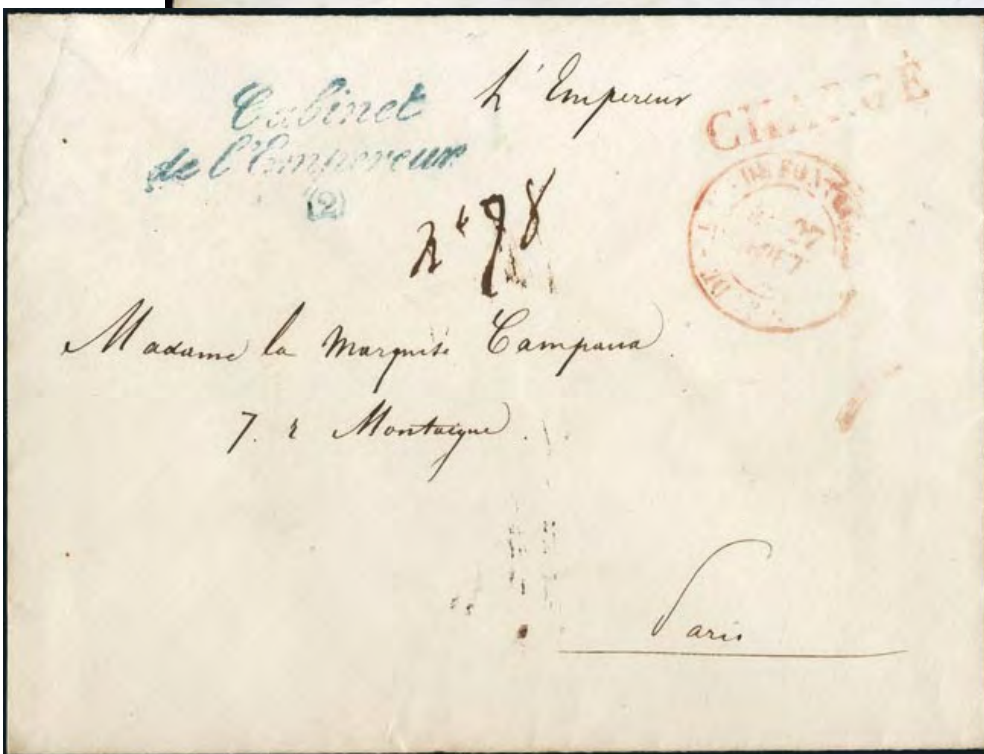 Cabinet
de l'Empereur
(2)
L'Empereur
CHARGÉ
DE FONT
27
N° 98
Madame la Marquise Campana
7. r Montaigne.
Paris